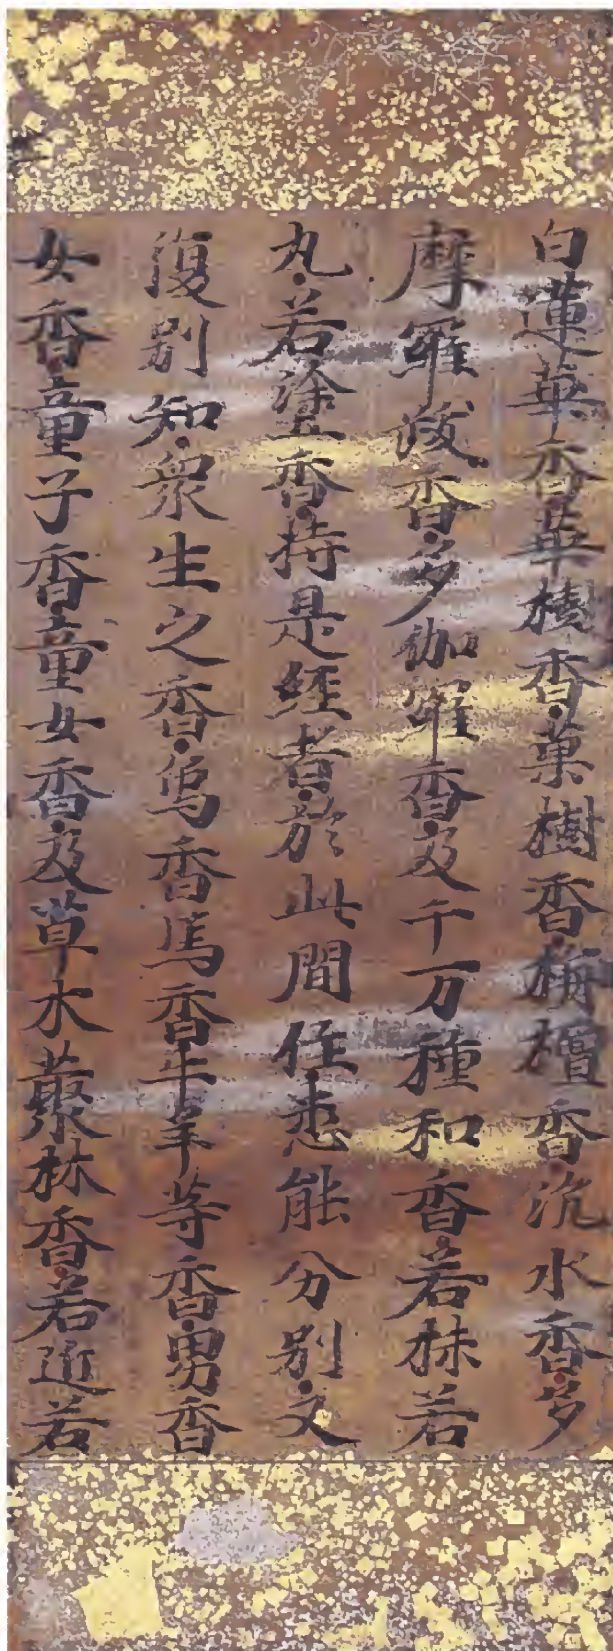 白蓮華香華樹香菓樹香栴檀香沉水香多
摩羅跋香多伽羅香及千万種和香若抹若
丸若塗香持是經者於此間住悉能分別又
復別知衆生之香烏香馬香牛羊等香男香
女香童子香童女香及草木藂林香若近若